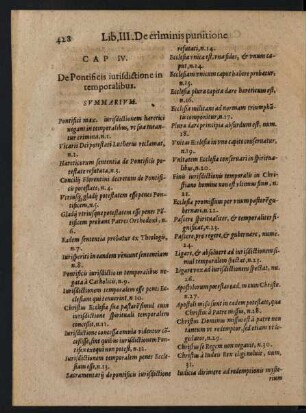 428 Lib. III. De criminis punitione
CAP IV.
De Pontificis iurisdictione in
temporalibus.
SVMMARIVM.
Pontifici max. iurisdictionem haeretici
negant in temporalibus, n.1.
Vicarii Dei potestati Lutherus reclamat,
n.1.
Haereticorum sententia de Pontificis po-
testate refutata, n.3.
Concilij Florentini decretum de Pontifi-
cis potestate, n.4.
Vtriusq; gladij potestatem esse penes Ponti-
ficem, n.5.
Gladij vtriusque potestatem esse penes Pō-
tificem probant Patres Orthodoxi, n.
6.
Eadem sententia probatur ex Theologis,
n.7.
Iurisperiti in eandem veniunt sententiam
n.8.
Pontificis iurisdictio in temporalibus ne-
gata à Catholicis, n.9.
Iurisdictionem temporalem esse penes Ec-
clesiam qui euincat, n.10.
Christus Ecclesiæ suæ pastori cum
iurisdictione spirituali temporalem
concessit, n.11.
Iurisdictione concessa omnia videntur cō-
cessa, sine quibus iurisdictionem Ponti-
fex exequi non potest, n.12.
Iurisdictionem temporalem penes Eccle-
siam esse, n.13.
Sacramentarij de pontificis iurisdictione
refutati, n.14.
Ecclesia vnica est, & vnum ca-
put, n.14.
Ecclesiam vnicum caput habere probatur,
n.15.
Ecclesia plura capita dare haereticum est,
n.16.
Ecclesia militans ad normam triumphā-
tis componitur, n.17.
Plura dare principia absurdum est, num.
18.
Vnitas Ecclesiæ in vno capite conseruatur,
n.19.
Vnitatem Ecclesiæ conseruari in spiritua-
libus, n.20.
Finis iurisdictionis temporalis in Chri-
stiano homine non est vltimus finis, n.
22.
Ecclesia promissum per vnum pastorē gu-
bernari, n.22.
Pascere spiritualiter, & temporaliter si-
gnificat, n.23.
Pascere, pro regere, & gubernare, num.
24.
Ligare, & absoluere ad iurisdictionem si-
mul temporalem spectat, n.25.
Ligare vox ad iurisdictionem spectat, nu.
26.
Apostolorum potestas vnde, n.27.
Apostoli missi sunt in eadem potestate, qua
Christus à Patre missus, n.28.
Christus Dominus missus est à patre non
tantum vt redemptor, sed etiam vt legi-
slator, n.29.
Christus se Regem non negauit, n.30.
Christus à Iudæis Rex eligi noluit, num.
31.
Iudicia dirimere ad redemptionis myste-
rium